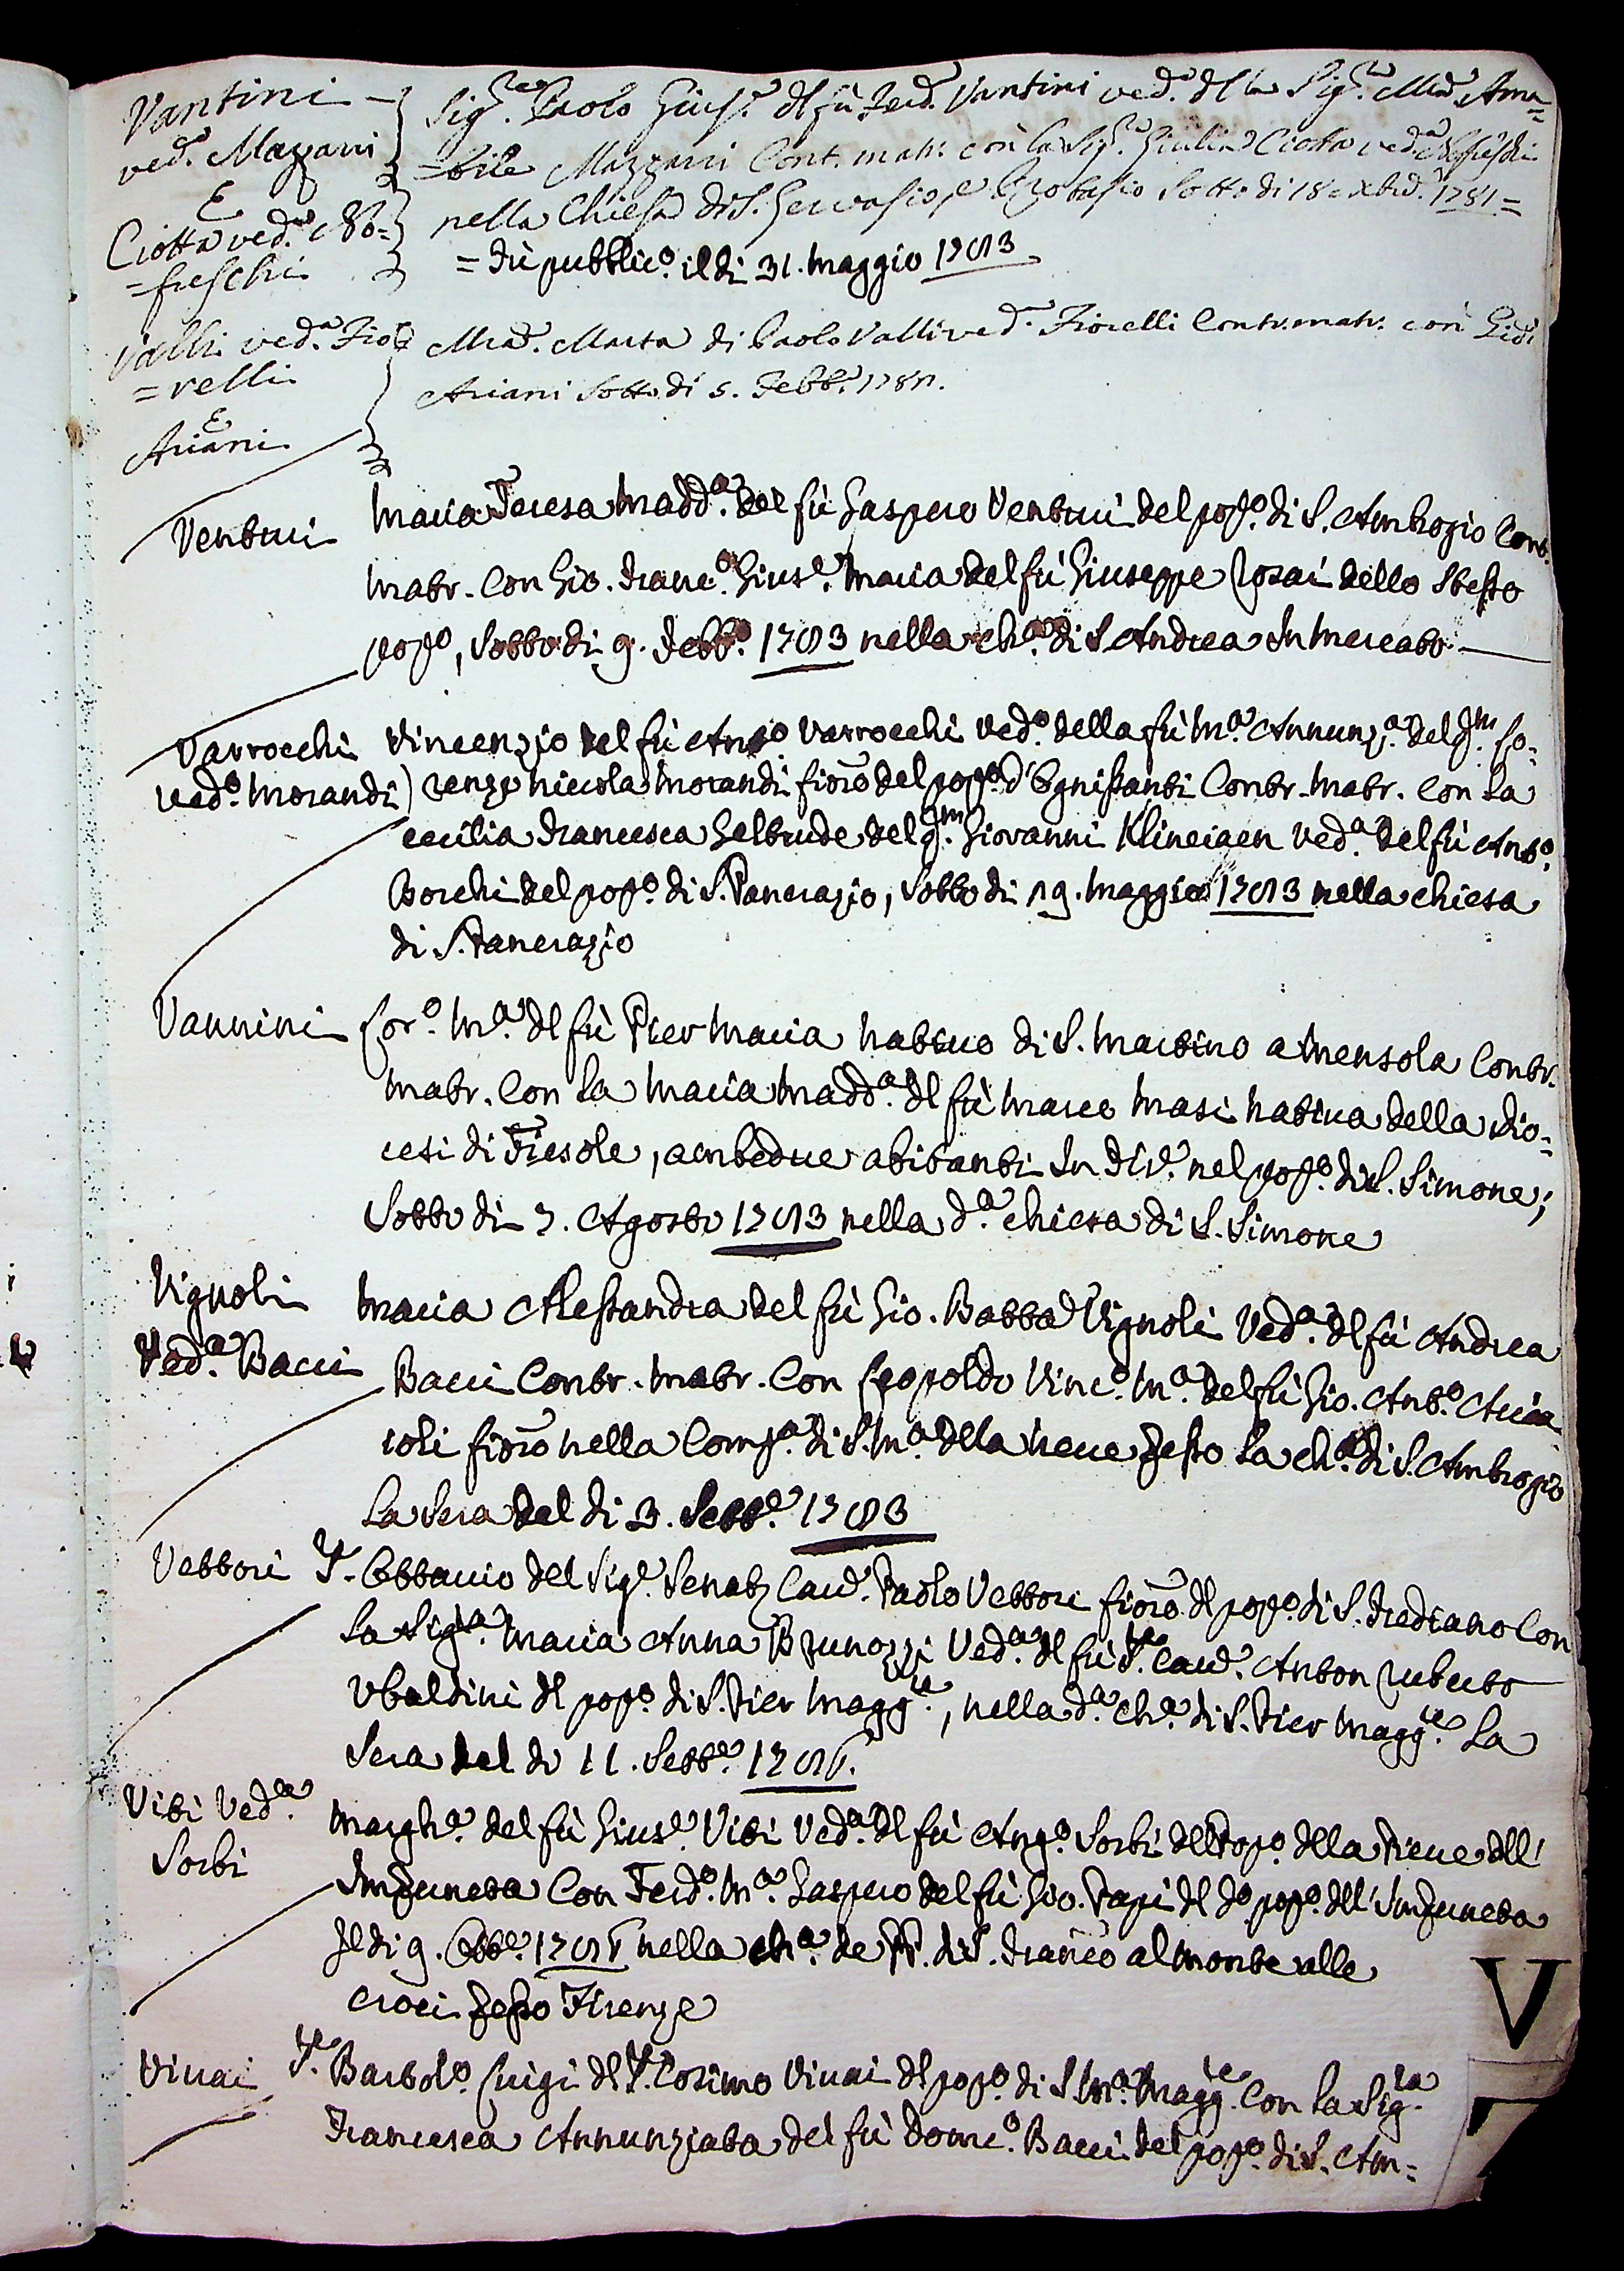 Vantini
ved.º Mazzarri
E
Ciotta ved.ª Bo=
=freschi
Sig.re Paolo Gius.e dl fù Ferd.º Vantini ved.º dlla Sig.ra M.ª Ama=
=bile Mazzarri Cont. matr: con la Sig.ra Giulia Ciotta ved.ª Bofreschi
nella Chiesa di S. Gervasio, e Protasio Sotto di 18 1781=
= dù pubblic.º il di 31. Maggio 1783
Valli ved.ª Fio=
=relli
E
Ariani
Mad. Marta di Paolo Valli ved.ª Fiorelli Contr. matr. con Gio:
Ariani Sotto di 5. Febb.º 1781.
Venturi
Maria Teresa Madd.ª del fù Gaspero Venturi del pop.º di S. Ambrogio Contr.
Matr. Con Gio. Franc.º Gius.e Maria del fù Giuseppe Rosai dello stesso
pop.º, Sotto di 9. Febb.º 1783 nella ch.ª di S. Andrea In Mercato.
Varrocchi
ved.º Morandi)
Vincenzio del fù Ant.º Varrocchi Ved.º della fù M.ª Annunz.ª del q.m Lo=
renzo Niccola Morandi fior.º del pop.º d'Ognissanti Contr. Matr. Con La
Cecilia Francesca Geltrude del q.m Giovanni Klinciaen Ved.ª del fù Ant.º
Boschi del pop.º di S. Pancrazio, Sotto di 19. Maggio 1783 nella chiesa
di S. Pancrazio
Vannini
Lor.º M.ª dl fù Pier Maria nativo di S. Martino a Mensola Contr.
Matr. Con La Maria Madd.ª dl fù Marco Masi nativa della Dio=
cesi di Fiesole, ambedue abitanti In Div.e nel pop.º di S. Simone;
Sotto di 7. Agosto 1783 nella d.ª chiesa di S. Simone
Vignoli
Ved.ª Bacci
Maria Alessandra del fù Gio. Batta Vignoli Ved.ª dl fù Andrea
Bacci Contr. Matr. Con Leopoldo Vinc.º M.ª del fù Gio. Ant.º Accia
ioli fior.º nella Comp.ª di S. M.ª dlla Neve presso La ch.ª di S. Ambrogio
La Sera del di 3. Sett.e 1783
Vettori
S. Ottavio del Sig.e Senat. Cav.e Paolo Vettori fior.º dl pop.º di S. Frediano Con
La Sig.ra Maria Anna Brunozzi Ved.ª dl fù S. Cav.e Anton Ruberto
Ubaldini dl pop.º di S. Pier Magg.re, nella d.ª ch.ª di S. Pier Magg.re La
Sera del di 11. Sett.e 1785.
Viti Ved.ª
Sorbi
Margh.ª del fù Gius.e Viti Ved.ª dl fù Ang.º Sorbi del Pop.º dlla Pieve dll'
Impruneta Con Ferd.º M.ª Gaspero del fù Gio. Papi dl d.º pop.º dll'Impruneta
Il di 9. Ott.e 1785 nella ch.ª de PP. di S. Franc.º al Monte alle
croci presso Firenze
Vivai
S. Bartol.º Luigi dl S. Cosimo Vivai dl pop.º di S. M.ª Magg.re Con La Sig.ra
Francesca Annunziata del fù Dom.º Bacci del pop.º di S. Am=
V